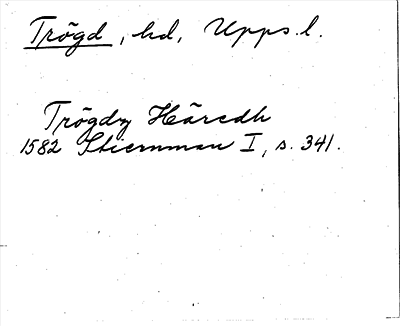 Trögd, hd, Upps. l.
Trögdz Häredh
1582 Stiernman I, s. 341.